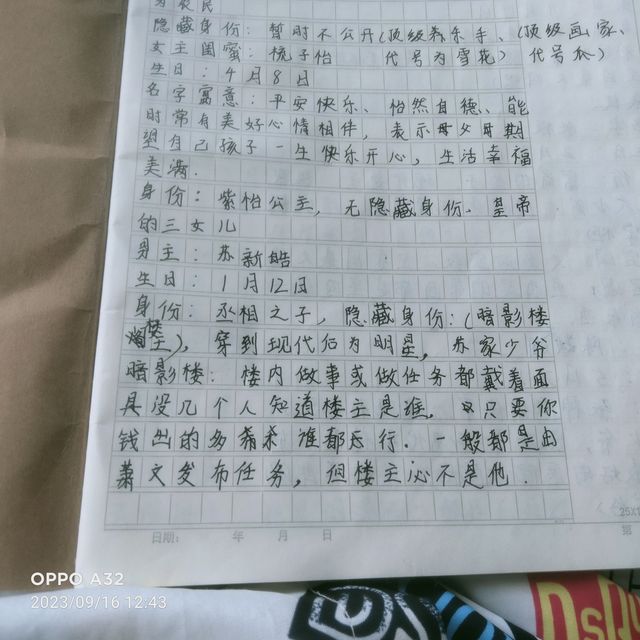 为农民
隐藏身份：暂时不公开(顶级杀手、(顶级画家、
女主闺蜜：梳子怡 代号为雪花) 代号爪)
生日：4月8日
名字寓意：平安快乐、怡然自德、能
时常有美好心情相伴，表示母父母期
望自己孩子一生快乐开心，生活幸福
美满.
身份：紫怡公主，无隐藏身份.皇帝
的三女儿
男主：苏新皓
生日：1月12日
身份：丞相之子，隐藏身份：(暗影楼
楼主)，穿到现代后为明星，苏家少爷
暗影楼：楼内做事或做任务都戴着面
具没几个人知道楼主是谁.只要你
钱出的多看杀谁都不行.一般都是由
萧文发布任务，但楼主必不是他.
25X1
日期： 年 月 日 第
OPPO A32
2023/09/16 12:43